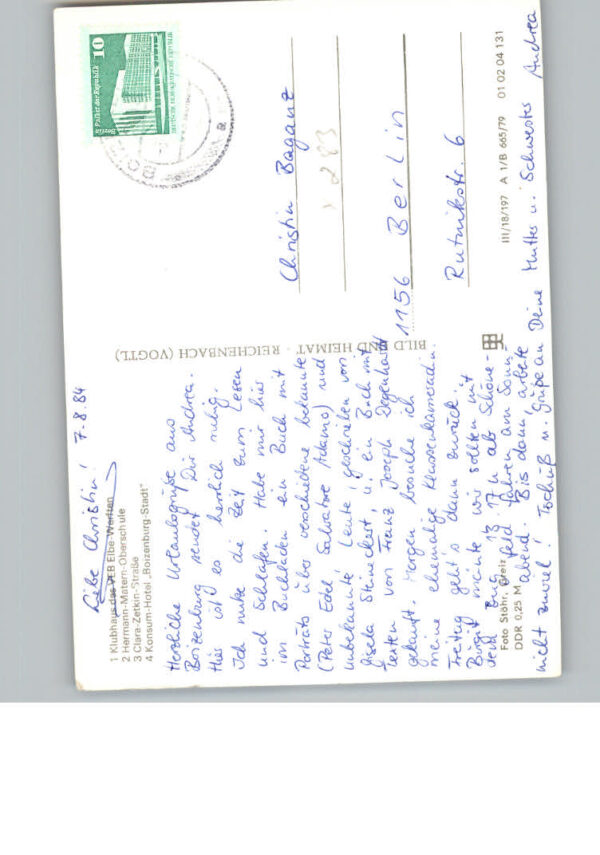 1 Klubhaus des VEB Elbe-Werften
2 Hermann-Matern-Oberschule
3 Clara-Zetkin-Straße
4 Konsum-Hotel „Boizenburg-Stadt"
Liebe Christin! 7.8.84
Herzliche Urlaubsgrüße aus
Boizenburg sendet Dir Andrea.
Hier ist es herrlich ruhig.
Ich nutze die Zeit zum Lesen
und Schlafen. Habe mir hier
im Buchladen ein Buch mit
Porträts über verschiedene bekannte
(Peter Edel, Salvatore Adamo) und
unbekannte Leute, geschrieben von
Gisela Steineckert, u. ein Buch mit
Texten von Franz Joseph Degenhardt
gekauft. Morgen besuche ich
meine ehemalige Klassenkameradin
Freitag geht's dann zurück.
Birgit meinte, wir sollten mit
dem Bus 13 17 h ab Schöne-
feld fahren am Sonn-
abend. Bis dann, arbeite
nicht zuviel! Tschüß u. Grüße an Deine Mutter u. Schwester Andrea
Foto Stöhr, Greiz
DDR 0,25 M
BILD UND HEIMAT · REICHENBACH (VOGTL)
10
Palast der Republik
Berlin
DEUTSCHE DEMOKRATISCHE REPUBLIK
Christin Baganz
283
1156 Berlin
Rutnikstr. 6
III/18/197 A 1/B 665/79 01 02 04 131